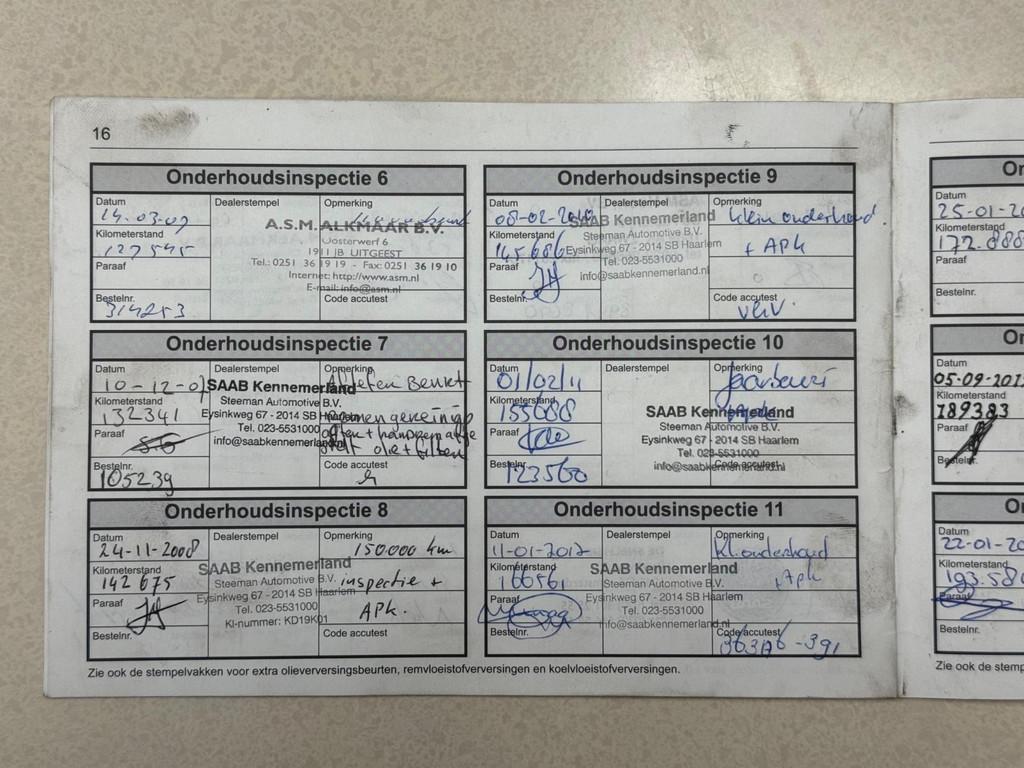 16
Onderhoudsinspectie 6
Datum Dealerstempel Opmerking
A.S.M. ALKMAAR B.V.
Kilometerstand
Oosterwerf 6
1911 JB UITGEEST
Paraaf
Tel.: 0251 36 19 19 - Fax: 0251 36 19 10
Internet: http://www.asm.nl
E-mail: info@asm.nl
Bestelnr. Code accutest
314253
Onderhoudsinspectie 7
Datum Dealerstempel Opmerking
10-12-07 SAAB Kennemerland
Steeman Automotive B.V.
Kilometerstand
132341
Eysinkweg 67 - 2014 SB Haarlem
Tel. 023-5531000
Paraaf
info@saabkennemerland.nl
olie + filter
Bestelnr. Code accutest
105239
Onderhoudsinspectie 8
Datum Dealerstempel Opmerking
24-11-2008 150.000 km
Kilometerstand SAAB Kennemerland
142675 Steeman Automotive B.V. inspectie +
Paraaf Eysinkweg 67 - 2014 SB Haarlem
Tel. 023-5531000 APK.
Kl-nummer: KD19K01
Bestelnr. Code accutest
Onderhoudsinspectie 9
Datum Dealerstempel Opmerking
08-02-2010 SAAB Kennemerland klein onderhoud
Kilometerstand Steeman Automotive B.V.
145686 Eysinkweg 67 - 2014 SB Haarlem + APK
Paraaf Tel. 023-5531000
info@saabkennemerland.nl
Bestelnr. Code accutest
Onderhoudsinspectie 10
Datum Dealerstempel Opmerking
01/02/11
Kilometerstand
155688 SAAB Kennemerland
Paraaf Steeman Automotive B.V.
Eysinkweg 67 - 2014 SB Haarlem
Tel. 023-5531000
Bestelnr. info@saabkennemerland.nl Code accutest
123560
Onderhoudsinspectie 11
Datum Dealerstempel Opmerking
11-01-2012 Kl. onderhoud
Kilometerstand SAAB Kennemerland
166561 Steeman Automotive B.V. Apk
Paraaf Eysinkweg 67 - 2014 SB Haarlem
Tel. 023-5531000
info@saabkennemerland.nl
Bestelnr. Code accutest
Zie ook de stempelvakken voor extra olieverversingsbeurten, remvloeistofverversingen en koelvloeistofverversingen.
Datum
25-01-20
Kilometerstand
172.888
Paraaf
Bestelnr.
Datum
05-09-201
Kilometerstand
189383
Paraaf
Bestelnr.
Datum
22-01-20
Kilometerstand
193.580
Paraaf
Bestelnr.
Zie ook de